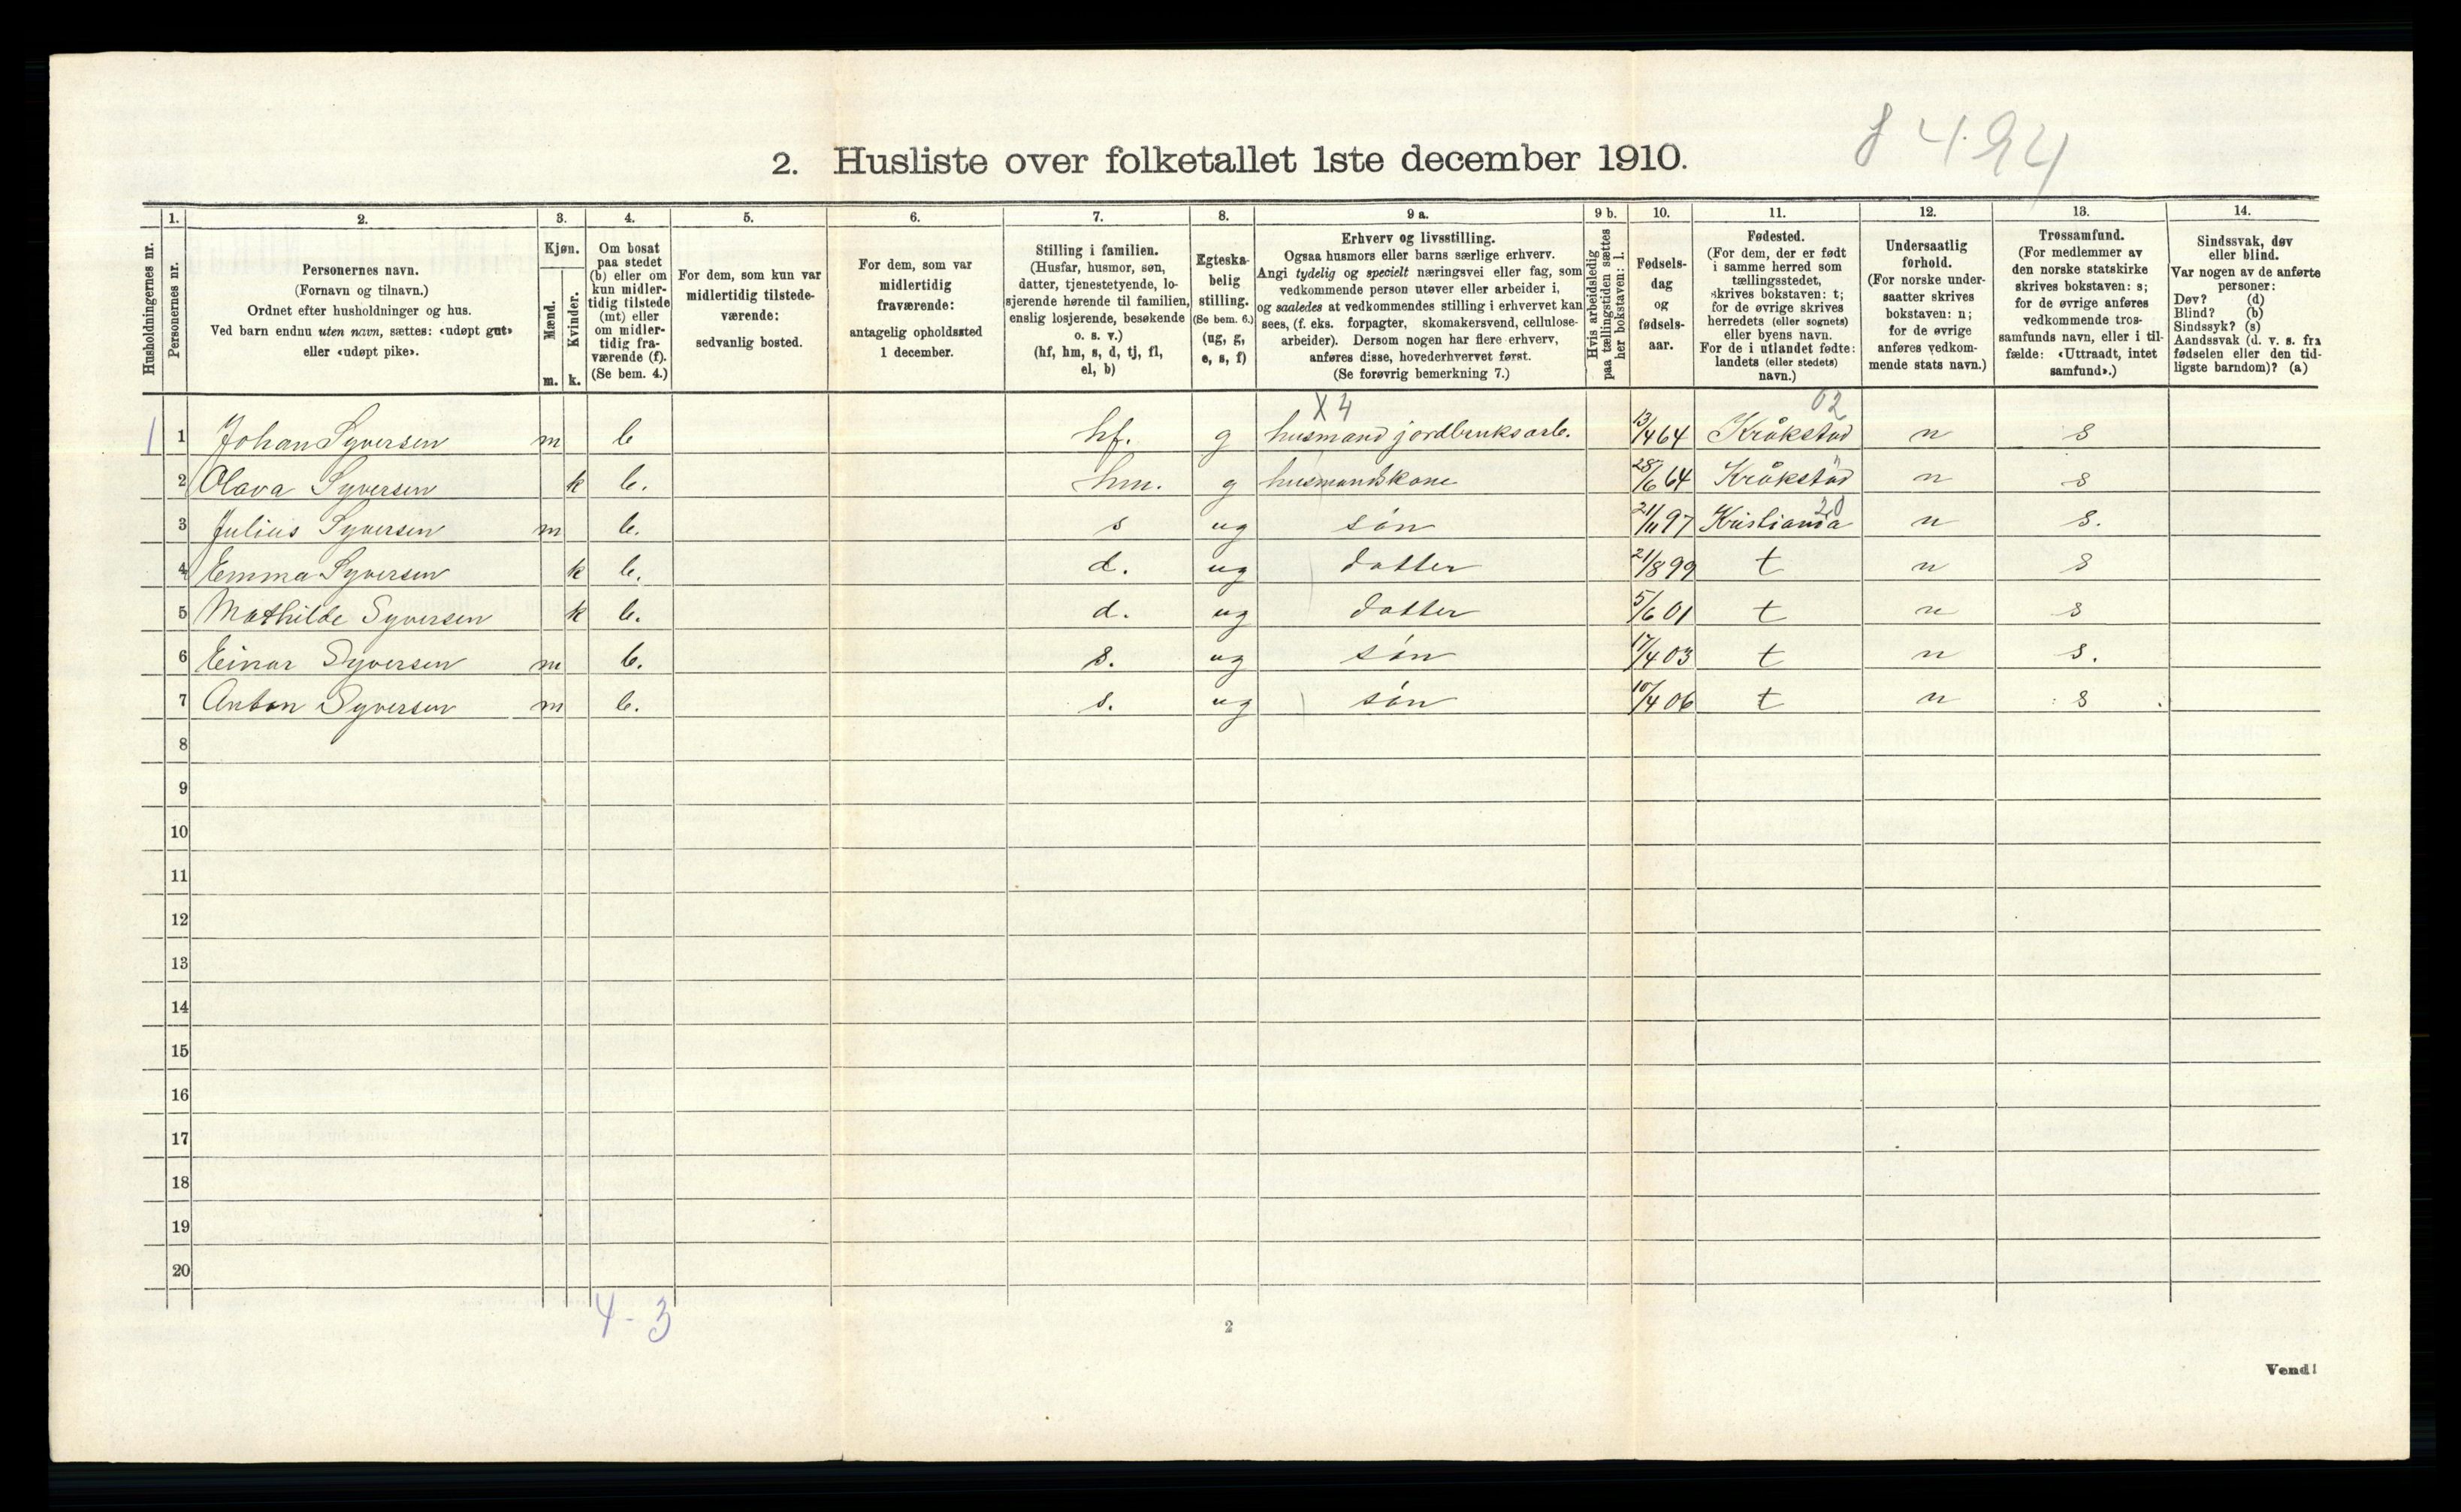 8 4.94
2. Husliste over folketallet 1ste december 1910.
1. 2. 3. 4. 5. 6. 7. 8. 9 a. 9 b. 10. 11. 12. 13. 14.
Husholdningernes nr.
Personernes nr.
Personernes navn.
(Fornavn og tilnavn.)
Ordnet efter husholdninger og hus.
Ved barn endnu uten navn, sættes: «udøpt gut»
eller «udøpt pike».
Kjøn.
Mænd.
Kvinder.
m. k.
Om bosat
paa stedet
(b) eller om
kun midler-
tidig tilstede
(mt) eller
om midler-
tidig fra-
værende (f).
(Se bem. 4.)
For dem, som kun var
midlertidig tilstede-
værende:
sedvanlig bosted.
For dem, som var
midlertidig
fraværende:
antagelig opholdssted
1 december.
Stilling i familien.
(Husfar, husmor, søn,
datter, tjenestetyende, lo-
sjerende hørende til familien,
enslig losjerende, besøkende
o. s. v.)
(hf, hm, s, d, tj, fl,
el, b)
Egteska-
belig
stilling.
(Se bem. 6.)
(ug, g,
e, s, f)
Erhverv og livsstilling.
Ogsaa husmors eller barns særlige erhverv.
Angi tydelig og specielt næringsvei eller fag, som
vedkommende person utøver eller arbeider i,
og saaledes at vedkommendes stilling i erhvervet kan
sees, (f. eks. forpagter, skomakersvend, cellulose-
arbeider). Dersom nogen har flere erhverv,
anføres disse, hovederhvervet først.
(Se forøvrig bemerkning 7.)
Hvis arbeidsledig
paa tællingstiden sættes
her bokstaven: l.
Fødsels-
dag
og
fødsels-
aar.
Fødested.
(For dem, der er født
i samme herred som
tællingsstedet,
skrives bokstaven: t;
for de øvrige skrives
herredets (eller sognets)
eller byens navn.
For de i utlandet fødte:
landets (eller stedets)
navn.)
Undersaatlig
forhold.
(For norske under-
saatter skrives
bokstaven: n;
for de øvrige
anføres vedkom-
mende stats navn.)
Trossamfund.
(For medlemmer av
den norske statskirke
skrives bokstaven: s;
for de øvrige anføres
vedkommende tros-
samfunds navn, eller i til-
fælde: «Uttraadt, intet
samfund».)
Sindssvak, døv
eller blind.
Var nogen av de anførte
personer:
Døv? (d)
Blind? (b)
Sindssyk? (s)
Aandssvak (d. v. s. fra
fødselen eller den tid-
ligste barndom)? (a)
X 4 02
1 1 Johan Syversen m b hf. g husmand jordbruksarb. 13/4 64 Kråkstad n s
2 Olava Syversen k b. hm. g husmandskone 28/6 64 Kråkstad n s
20
3 Julius Syversen m b. s ug søn 21/11 97 Kristiania n s.
4 Emma Syversen k b. d. ug datter 21/8 99 t n s
5 Mathilde Syversen k b. d. ug datter 5/6 01 t n s
6 Einar Syversen m b. s. ug søn 17/4 03 t n s.
7 Anton Syversen m b. s. ug søn 10/4 06 t n s
8
9
10
11
12
13
14
15
16
17
18
19
20
4-3
2
Vend!